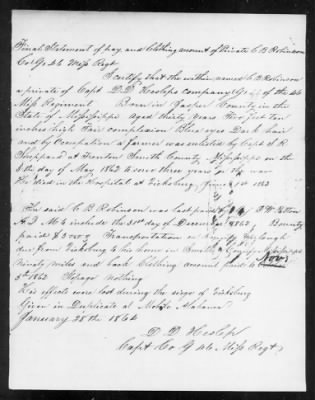 Final Statement of pay and Clothing account of Private C B Robinson
Co G 46 Miss Regt
I certify that the within named C B Robinson
a private of Capt D. D. Heslep's company (G) of the 46
Miss Regiment Born in Jasper County in the
State of Mississippi Aged thirty years Five feet ten
inches high Fair complexion Blue eyes Dark hair
and by Occupation a farmer was enlisted by Capt
Sheppard at Trenton Smith County Mississippi on the
day of May 1862 to serve three years or the war
He died in the Hospital at Vicksburg June 1863
The said C B Robinson was last paid by
A. Q. M. to include the 31st of December 1862, Bounty
paid $50.00 Transportation
due from Vicksburg to his home in Smith County Mississippi
ninety miles and back Clothing account paid to
8th 1862 Stopage nothing
His effects were lost during the siege of Vicksburg
Given in Duplicate at Mobile Alabama
January 28th 1864
D. D. Heslep
Capt Co G 46 Miss Regt